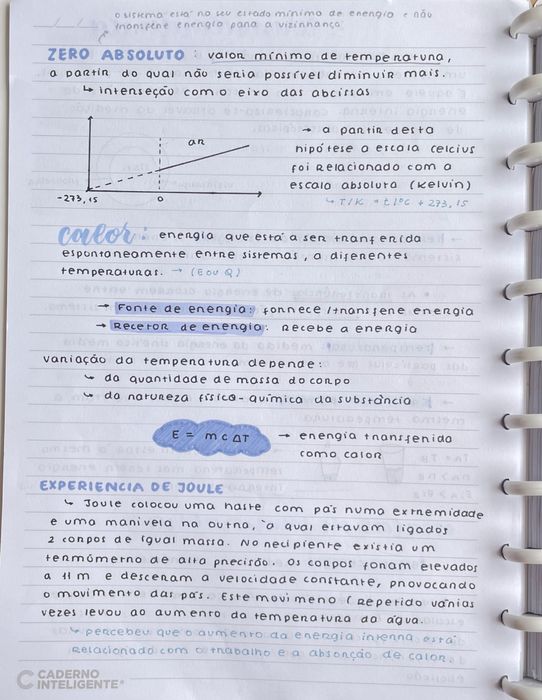 o sistema está no seu estado mínimo de energia e não
transfere energia para a vizinhança
ZERO ABSOLUTO : valor mínimo de temperatura,
a partir do qual não seria possível diminuir mais.
↳ interseção com o eixo das abcissas
ar
-273,15
0
→ a partir desta
hipótese a escala celcius
foi relacionado com a
escala absoluta (kelvin)
↳ T/K = t/°C + 273,15
calor : energia que está a ser tranferida
espontaneamente entre sistemas, a diferentes
temperaturas. → (E ou Q)
→ Fonte de energia: fornece /transfere energia
→ Recetor de energia: Recebe a energia
variação da temperatura depende:
↳ da quantidade de massa do corpo
↳ da natureza físico-química da substância
E = m c ΔT → energia transferida
como calor
EXPERIENCIA DE JOULE
↳ Joule colocou uma haste com pás numa extremidade
e uma manivela na outra, à qual estavam ligados
2 corpos de igual massa. No recipiente existia um
termómetro de alta precisão. Os corpos foram elevados
a 11 m e desceram a velocidade constante, provocando
o movimento das pás. Este movimeno (repetido várias
vezes levou ao aumento da temperatura da água.
↳ percebeu que o aumento da energia interna está
relacionado com o trabalho e a absorção de calor.
CADERNO
INTELIGENTE®